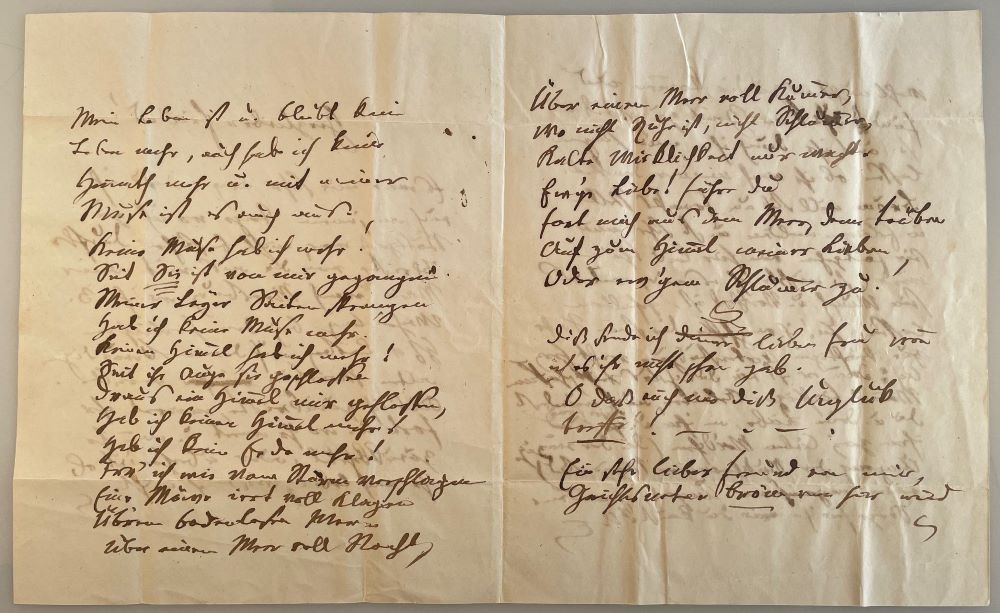 Mein Leben ist u. bleibt kein
Leben mehr, auch habe ich keine
Heimath mehr u. mit meiner
Muse ist es auch aus.
Keine Muse hab ich mehr!
Seit Sie ist von mir gegangen.
Meiner Leyer Saiten sprangen
Hab ich keine Muse mehr.
Keinen Himel hab ich mehr!
Seit ihr Auge sie geschlossen
Draus ein Himel mir geflossen,
Hab ich keinen Himel mehr.
Hab ich keine Erde mehr!
Irr' ich wie vom Sturm verschlagen
Eine Möwe irrt voll Klagen
Überm bodenlosen Meer
Über einem Meer voll Nacht,
Über einem Meer voll Kumer,
Wo nicht Ruhe ist, nicht Schlumer,
Kalte Wirklichkeit nur wacht.
Ew'ge Liebe! führe du
fort mich aus dem Meer, dem trüben
Auf zum Himel meiner Lieben,
Oder ew'gem Schlumer zu.
Diß sende ich deiner lieben Frau wen
ich es ihr nicht schon gab.
O daß euch nie diß Unglük
treffe!
Ein sehr lieber Freund von mir,
von hier wird